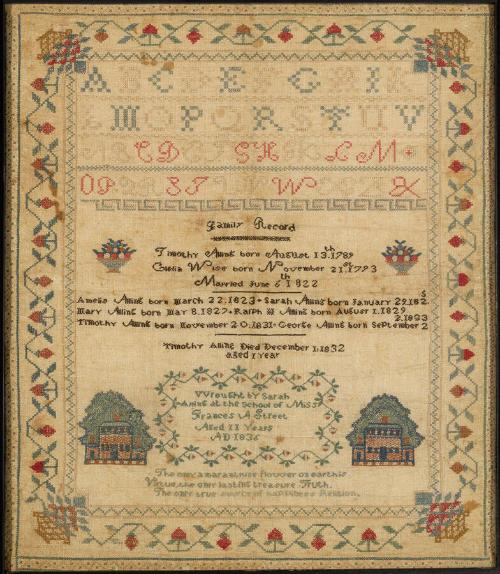 A C E G I
M P O R S T U V
C D G H L M
O P S T W X
Family Record
Timothy Aming born August 13th 1789
Cusia Wise born November 21st 1793
Married June 6th 1822
Amelia Aming born March 22.1823 Sarah Aming born January 29.182 5
Mary Aming born May 8.1827 Ralph H Aming born August 1.1829
Timothy Aming born November 20.1831 George Aming born September 2 2.1833
Timothy Aming Died December 1.1832
aged 1 year
Wrought by Sarah
Aming at the School of Miss
Frances A Street
Aged 11 Years
AD 1836
The only amaranthine flower on earth is
Virtue, the only lasting treasure Truth.
The only true source of happiness Religion.